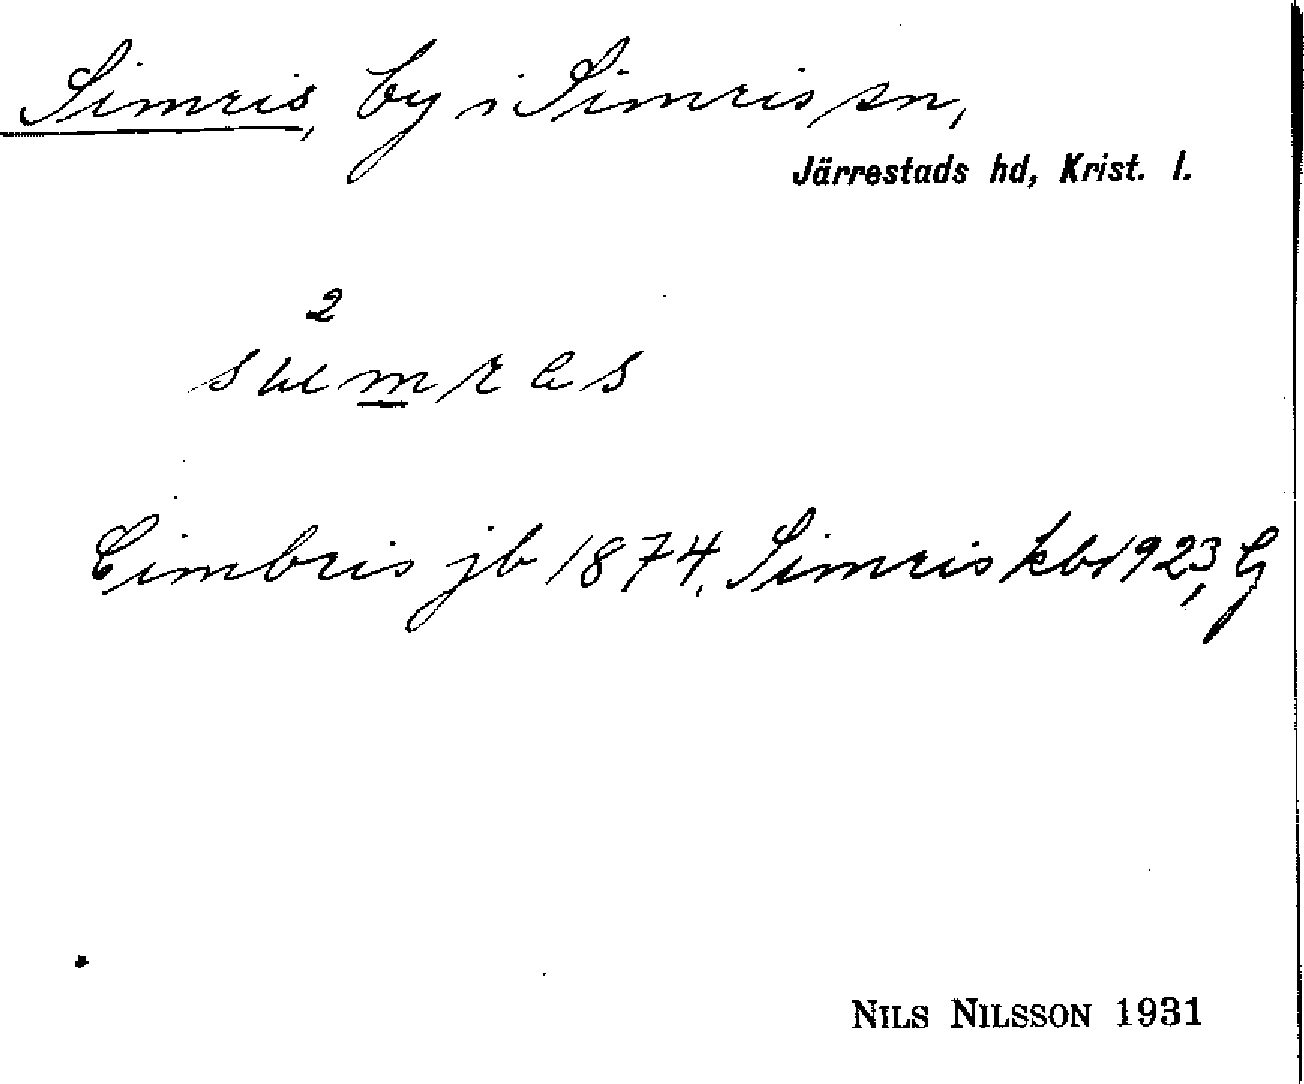 Simris, by i Simris sn,
Järrestads hd, Krist. l.
2
Cimbris jb 1874, Simris kbd 1923, G
NILS NILSSON 1931